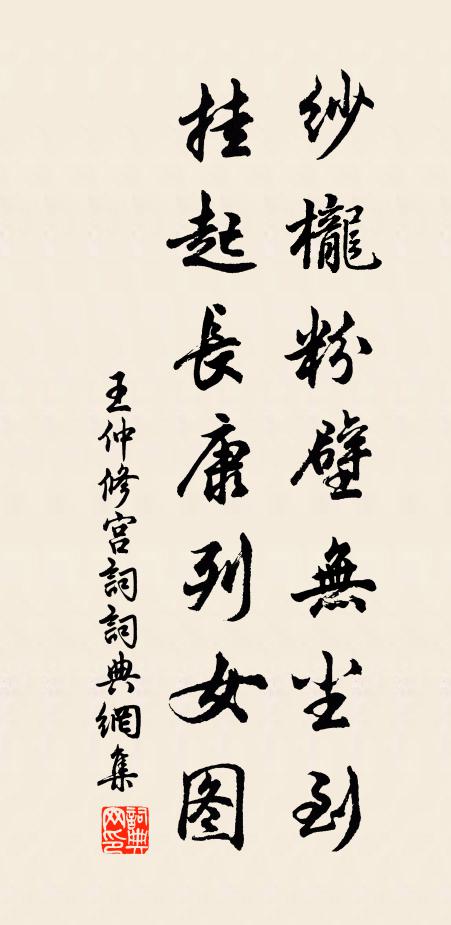 纱櫳粉壁無尘到
挂起長康列女图
王仲修宫詞詞典網集
詞典网印